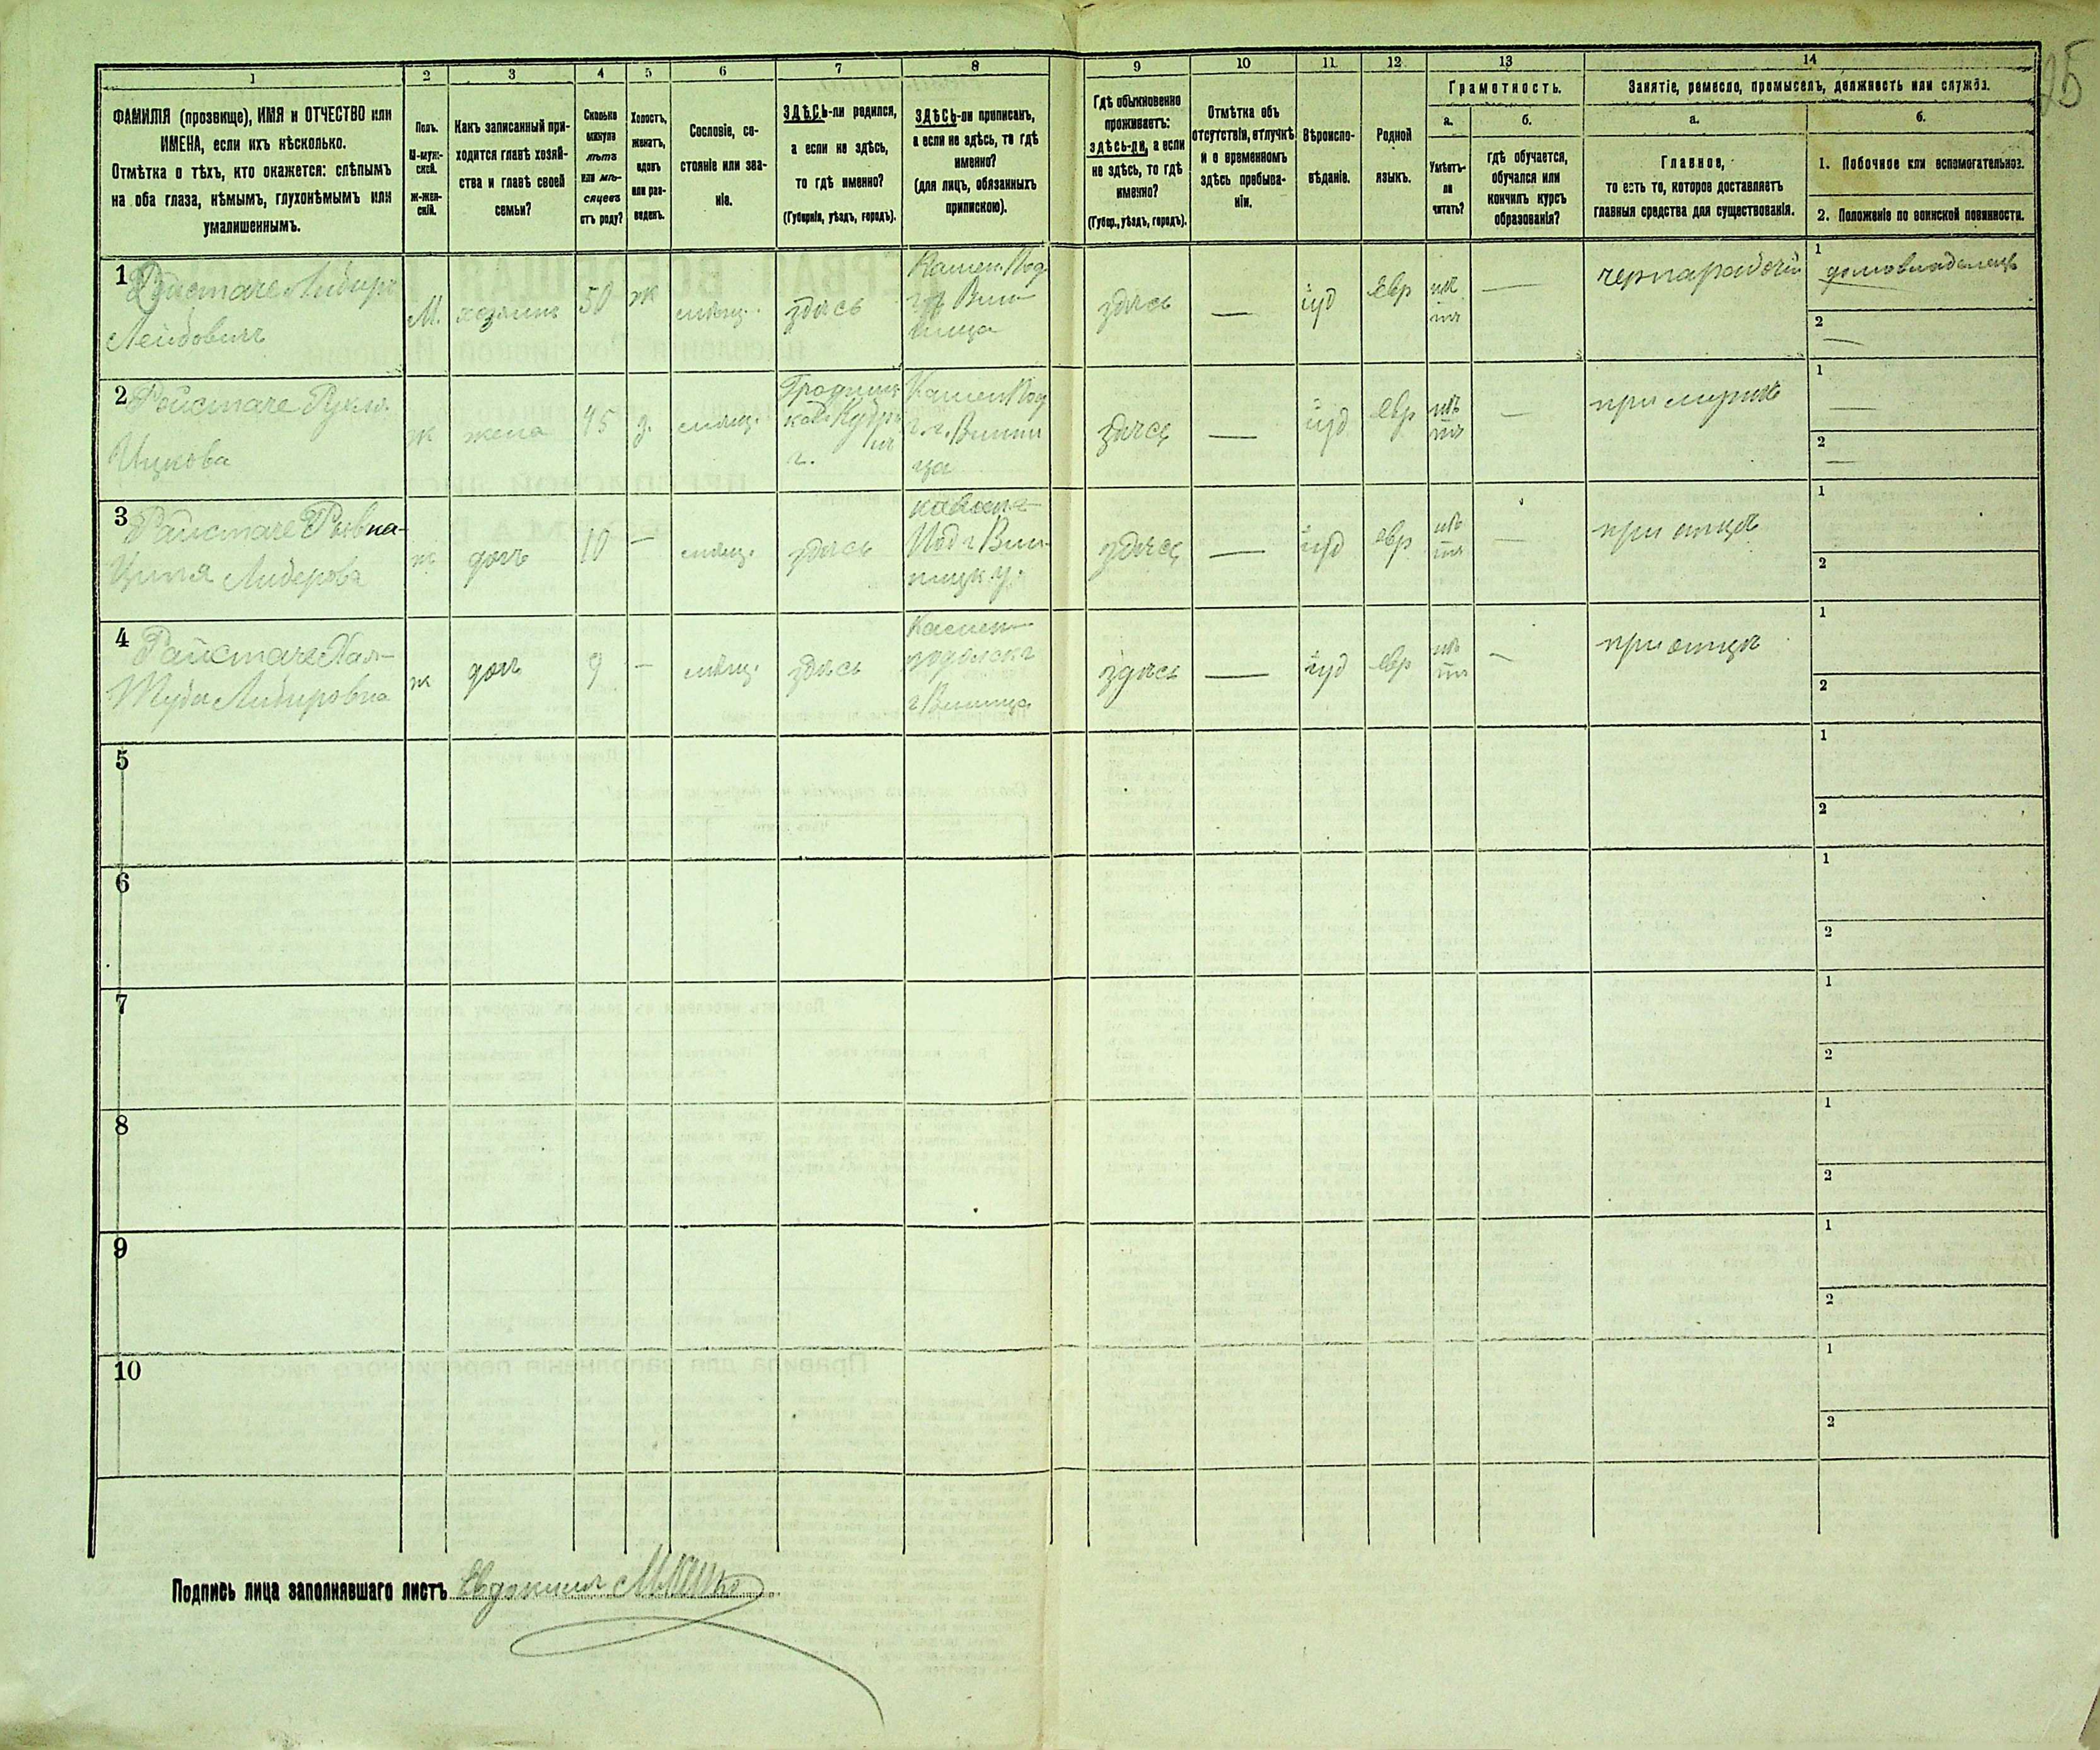 25
1
2
3
4
5
6
7
8
9
10
11
12
13
14
ФАМИЛІЯ (прозвище), ИМЯ и ОТЧЕСТВО или
ИМЕНА, если ихъ нѣсколько.
Отмѣтка о тѣхъ, кто окажется: слѣпымъ
на оба глаза, нѣмымъ, глухонѣмымъ или
умалишеннымъ.
Полъ.
М-муж-
ской.
Ж-жен-
скій.
Какъ записанный при-
ходится главѣ хозяй-
ства и главѣ своей
семьи?
Сколько
минуло
лѣтъ
или мѣ-
сяцевъ
отъ роду?
Холостъ,
женатъ,
вдовъ
или раз-
веденъ.
Сословіе, со-
стояніе или зва-
ніе.
ЗДѢСЬ-ли родился,
а если не здѣсь,
то гдѣ именно?
(Губернія, уѣздъ, городъ).
ЗДѢСЬ-ли приписанъ,
а если не здѣсь, то гдѣ
именно?
(для лицъ, обязанныхъ
припискою).
Гдѣ обыкновенно
проживаетъ:
здѣсь-ли, а если
не здѣсь, то гдѣ
именно?
(Губер., уѣздъ, городъ).
Отмѣтка объ
отсутствіи, отлучкѣ
и о временномъ
здѣсь пребыва-
ніи.
Вѣроиспо-
вѣданіе.
Родной
языкъ.
Грамотность.
а.
Умѣетъ-
ли
читать?
б.
гдѣ обучается,
обучался или
кончилъ курсъ
образованія?
Занятіе, ремесло, промыселъ, должность или служба.
а.
Главное,
то есть то, которое доставляетъ
главныя средства для существованія.
б.
1. Побочное или вспомогательное.
2. Положеніе по воинской повинности.
1
Лейбовичъ
М.
хозяинъ
50
ж
мѣщ.
здѣсь
Камен. Под
здѣсь
—
іуд
Евр
нѣ
тъ
—
чернарабочій
1
домовладелецъ
2
—
2
Ицкова
ж
жена
45
з.
мѣщ.
Камен Под
здѣсь
—
іуд
Евр
нѣ
тъ
—
при мужѣ
1
—
2
—
3
Ципя Лидерова
ж
дочь
10
—
мѣщ.
здѣсь
здѣсь
—
іуд
евр
нѣ
тъ
—
при отцѣ
1
2
4
ж
дочь
9
—
мѣщ.
здѣсь
Камен-
подольск г
г Виница
здѣсь
—
іуд
евр
нѣ
тъ
—
при отцѣ
1
2
5
1
2
6
1
2
7
1
2
8
1
2
9
1
2
10
1
2
Подпись лица заполнявшаго листъ Евдокимъ